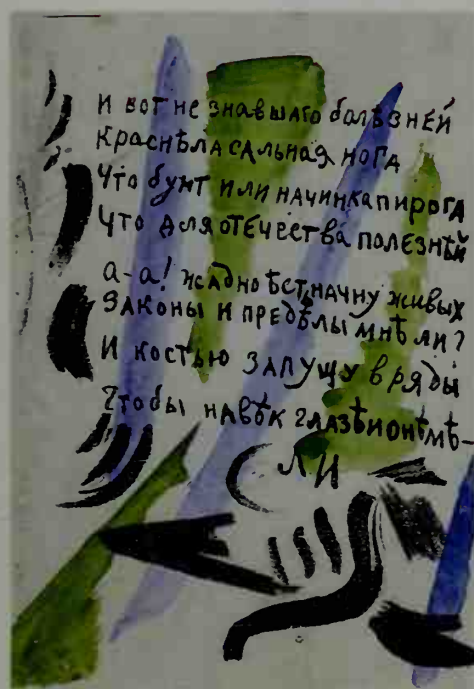 И вот не знавшаго болѣзней
Краснѣла сальная нога
Что бунт или начинка пирога
Что для отечества полезнѣй
а-а! жадно ѣст, начну живых
Законы и предѣлы мнѣ ли?
И костью запущу в ряды
Чтобы навѣк глазѣ онѣмѣ-
ли